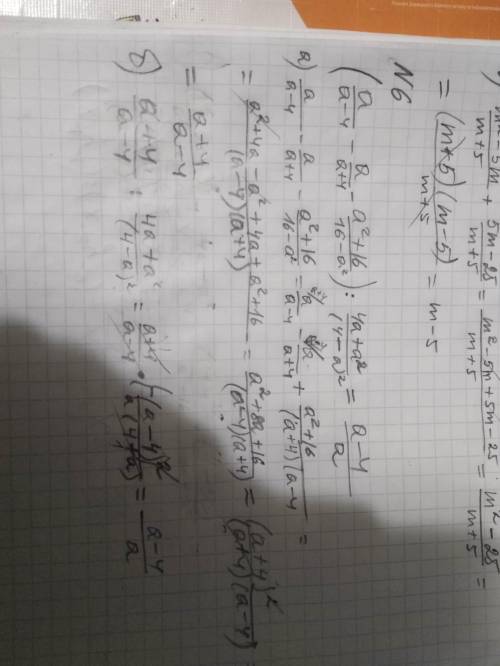 (m² - 5m)/(m+5) + (5m - 25)/(m+5) = (m² - 5m + 5m - 25)/(m+5) = (m² - 25)/(m+5) =
= ((m+5)(m-5))/(m+5) = m-5
N6
(a/(a-4) - a/(a+4) - (a²+16)/(16-a²)) : (4a+a²)/(4-a)² = (a-4)/a
а) a/(a-4) - a/(a+4) - (a²+16)/(16-a²) = a/(a-4) - a/(a+4) + (a²+16)/((a+4)(a-4) =
= (a²+4a-a²+4a+a²+16)/((a-4)(a+4)) = (a²+8a+16)/((a-4)(a+4)) = (a+4)²/((a+4)(a-4)) =
= (a+4)/(a-4)
б) (a+4)/(a-4) : (4a+a²)/(4-a)² = (a+4)/(a-4) · (a-4)²/(a(4+a)) = (a-4)/a